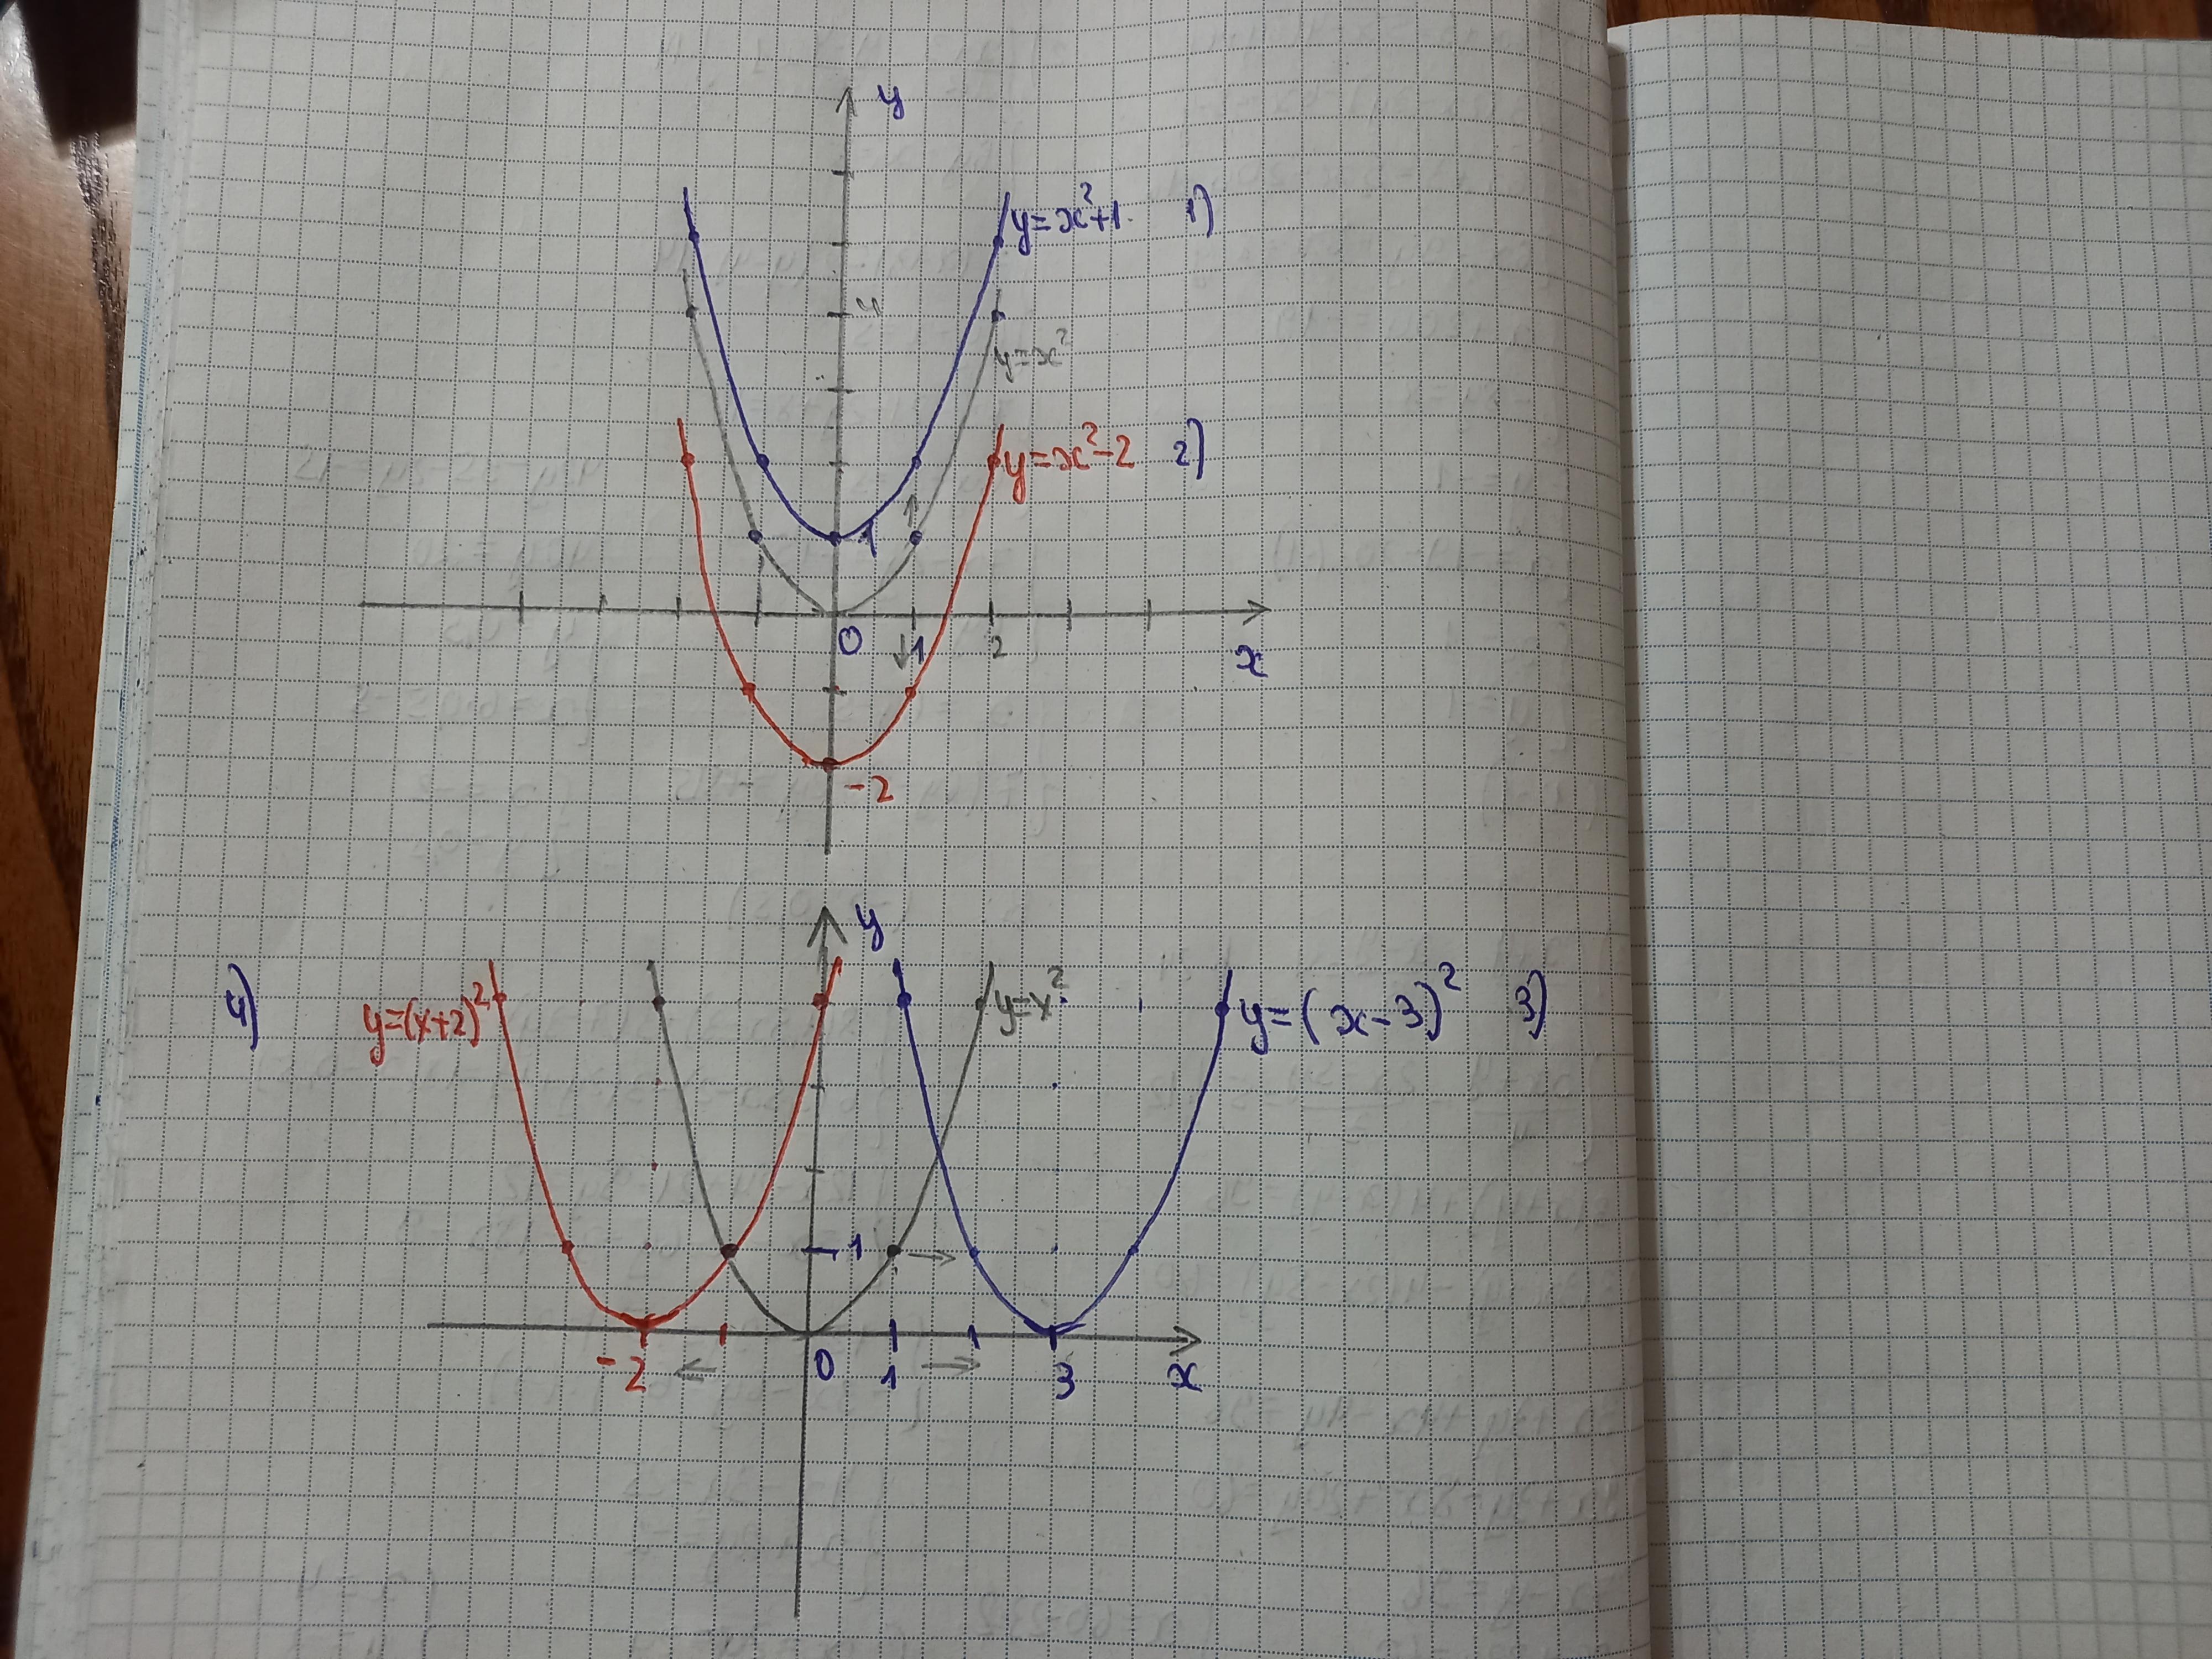 y
y=x²+1 1)
4
y=x²
y=x²-2 2)
1
0 1 2
x
-2
y
4) y=(x+2)² y=x² y=(x-3)² 3)
1
-2 0 1 3 x